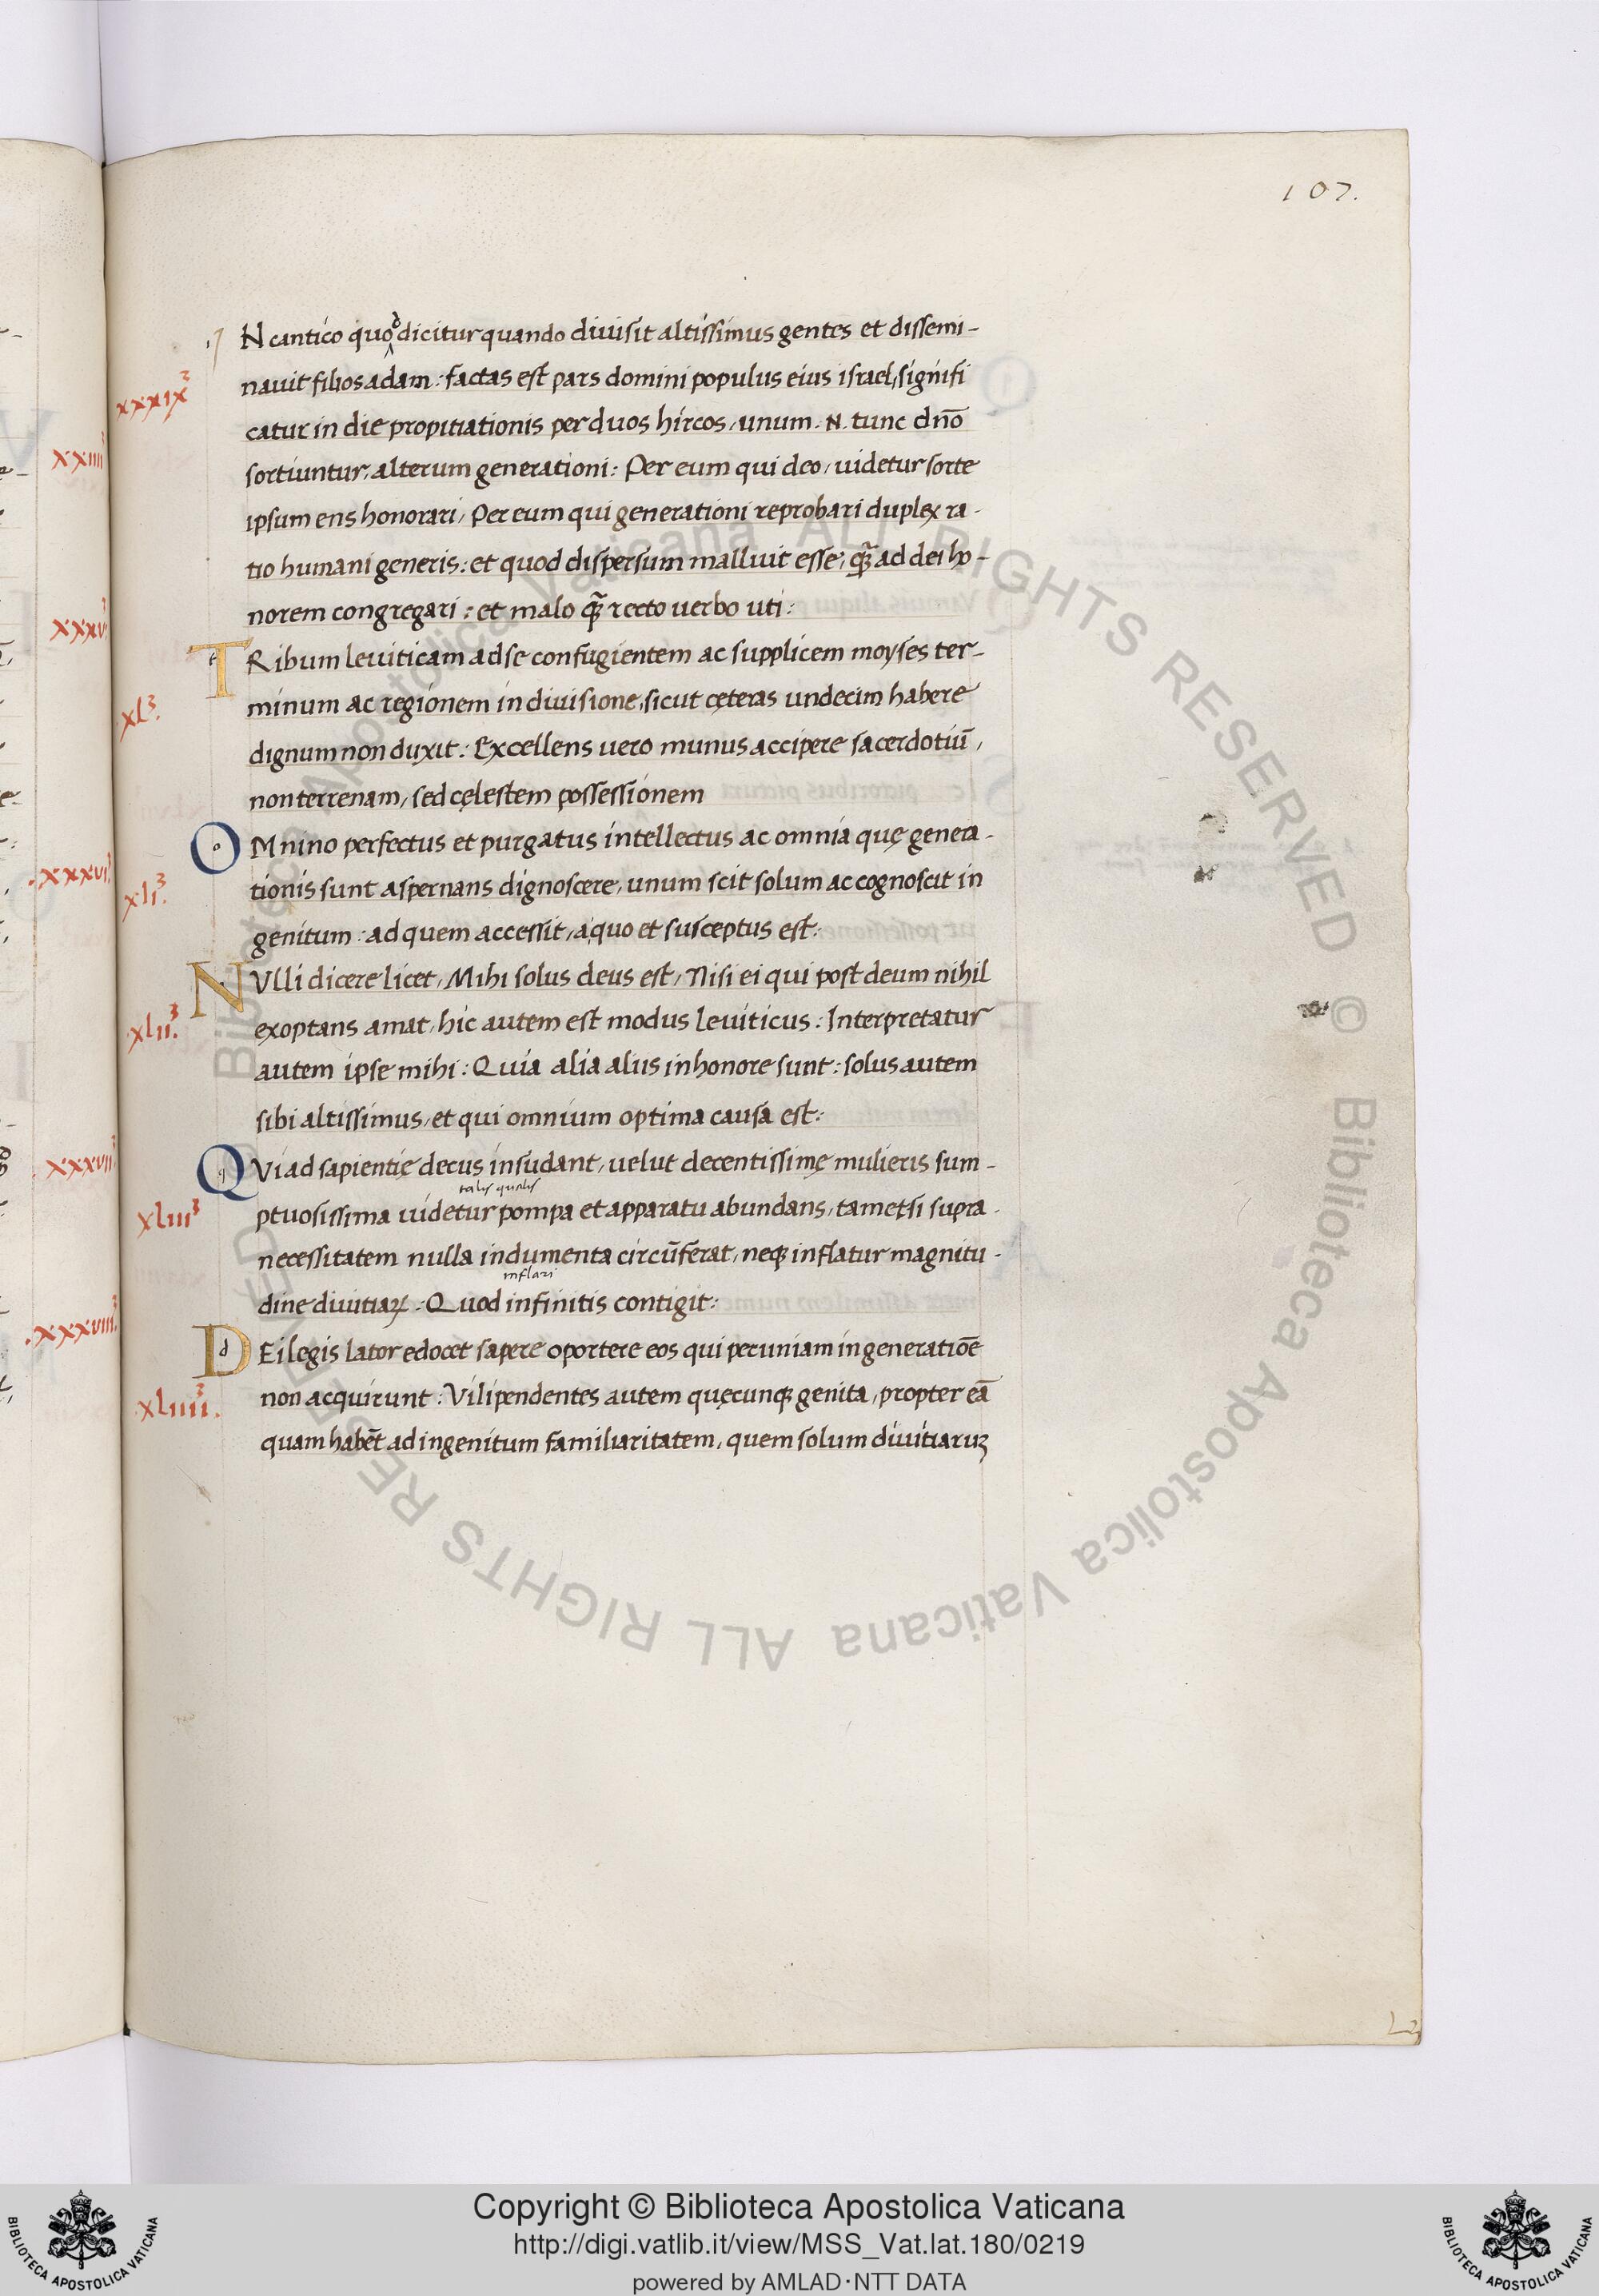 107.
IN cantico quod dicitur quando diuisit altissimus gentes et dissemi-
nauit filios adam: factas est pars domini populus eius israel, signifi
catur in die propitiationis per duos hircos, unum .N. tunc dn̄o
sortiuntur, alterum generationi: Per eum qui deo, uidetur sorte
ipsum ens honorari, Per eum qui generationi reprobari duplex ra-
tio humani generis: et quod dispersum malluit esse, qꝫ̄ ad dei ho-
norem congregari: et malo qꝫ̄ recto uerbo uti:
xxxix
TRibum leuiticam ad se confugientem ac supplicem moyses ter-
minum ac regionem in diuisione, sicut cęteras undecim habere
dignum non duxit: Excellens uero munus accipere sacerdotiū,
non terrenam, sed cęlestem possessionem
xl.
OMnino perfectus et purgatus intellectus ac omnia quę genera-
tionis sunt aspernans dignoscere, unum scit solum ac cognoscit in
genitum: ad quem accessit, a quo et susceptus est:
xli.
NVlli dicere licet, Mihi solus deus est, Nisi ei qui post deum nihil
exoptans amat, hic autem est modus leuiticus: Interpretatur
autem ipse mihi: Quia alia aliis in honore sunt: solus autem
sibi altissimus, et qui omnium optima causa est:
xlii.
QVi ad sapientię decus insudant, uelut decentissimę mulieris sum-
talis qualis
ptuosissima uidetur pompa et apparatu abundans, tametsi supra
necessitatem nulla indumenta circūferat, neqꝫ inflatur magnitu-
inflari
dine diuitiaꝝ: Quod infinitis contigit:
xliii
DEi legis lator edocet sapere oportere eos qui pecuniam in generatiōe
non acquirunt: Vilipendentes autem quęcunqꝫ genita, propter eā
quam habēt ad ingenitum familiaritatem, quem solum diuitiaruꝫ
xliiii.
xxxiiii
xxxv
.xxxvi
.xxxvii
.xxxviii.
Copyright © Biblioteca Apostolica Vaticana
http://digi.vatlib.it/view/MSS_Vat.lat.180/0219
powered by AMLAD·NTT DATA
BIBLIOTECA APOSTOLICA VATICANA
BIBLIOTECA APOSTOLICA VATICANA
Biblioteca Apostolica Vaticana ALL RIGHTS RESERVED © Biblioteca Apostolica Vaticana ALL RIGHTS RESERVED ©